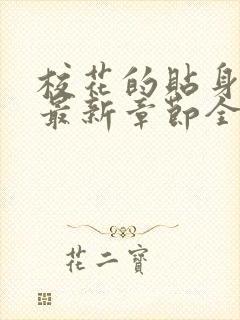 校花的貼身
最新章節全
花二寶